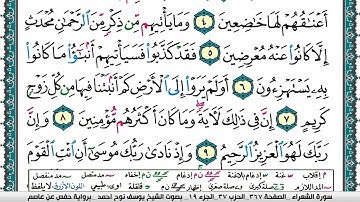 أَعْنَٰقُهُمْ لَهَا خَٰضِعِينَ ٤ وَمَا يَأْتِيهِم مِّن ذِكْرٍ مِّنَ ٱلرَّحْمَٰنِ مُحْدَثٍ
إِلَّا كَانُوا۟ عَنْهُ مُعْرِضِينَ ٥ فَقَدْ كَذَّبُوا۟ فَسَيَأْتِيهِمْ أَنۢبَٰٓؤُا۟ مَا كَانُوا۟
بِهِۦ يَسْتَهْزِءُونَ ٦ أَوَلَمْ يَرَوْا۟ إِلَى ٱلْأَرْضِ كَمْ أَنۢبَتْنَا فِيهَا مِن كُلِّ زَوْجٍ
كَرِيمٍ ٧ إِنَّ فِى ذَٰلِكَ لَءَايَةً وَمَا كَانَ أَكْثَرُهُم مُّؤْمِنِينَ ٨ وَإِنَّ
رَبَّكَ لَهُوَ ٱلْعَزِيزُ ٱلرَّحِيمُ ٩ وَإِذْ نَادَىٰ رَبُّكَ مُوسَىٰٓ أَنِ ٱئْتِ ٱلْقَوْمَ
سورة الشعراء - الصفحة ٣٦٧ - الحزب ٣٧ - الجزء ١٩ - بصوت الشيخ يوسف نوح احمد - رواية حفص عن عاصم